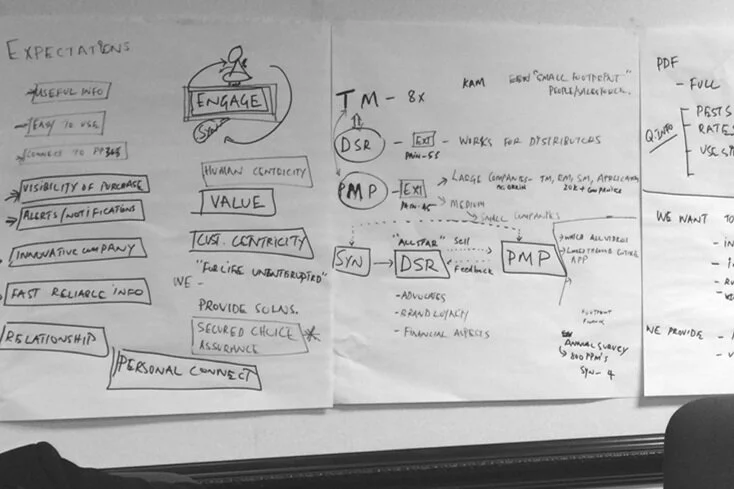 EXPECTATIONS
→ USEFUL INFO
→ EASY TO USE
→ CONNECT TO
→ VISIBILITY OF PURCHASE
→ ALERTS/NOTIFICATIONS
INNOVATIVE COMPANY
FAST RELIABLE INFO
RELATIONSHIP
PERSONAL CONNECT
ENGAGE
HUMAN CENTRICITY
VALUE
CUST. CENTRICITY
"FOR LIFE UNINTERRUPTED"
WE -
PROVIDE SOLNS.
SECURED CHOICE
ASSURANCE
TM - 8x
KAM
"SMALL FOOTPRINT"
PEOPLE/SALESFORCE.
DSR - EXT - WORKS FOR DISTRIBUTORS
PMP - EXT
LARGE COMPANIES - TM, EM, SM,
20K + COMPANIES
MEDIUM
SMALL COMPANIES
SYN → DSR
"ALLSTAR"
Sell
Feedback
PMP
- ADVOCATES
- BRAND LOYALTY
- FINANCIAL ASPECTS
→ WATCH ALL VIDEOS
APP
FOOTPRINT
ANNUAL SURVEY
→ 800 PPM'S
SYN - 4
PDF
- FULL
Q:INFO
- PESTS
- RATE
- USE
WE WANT TO
WE PROVIDE -